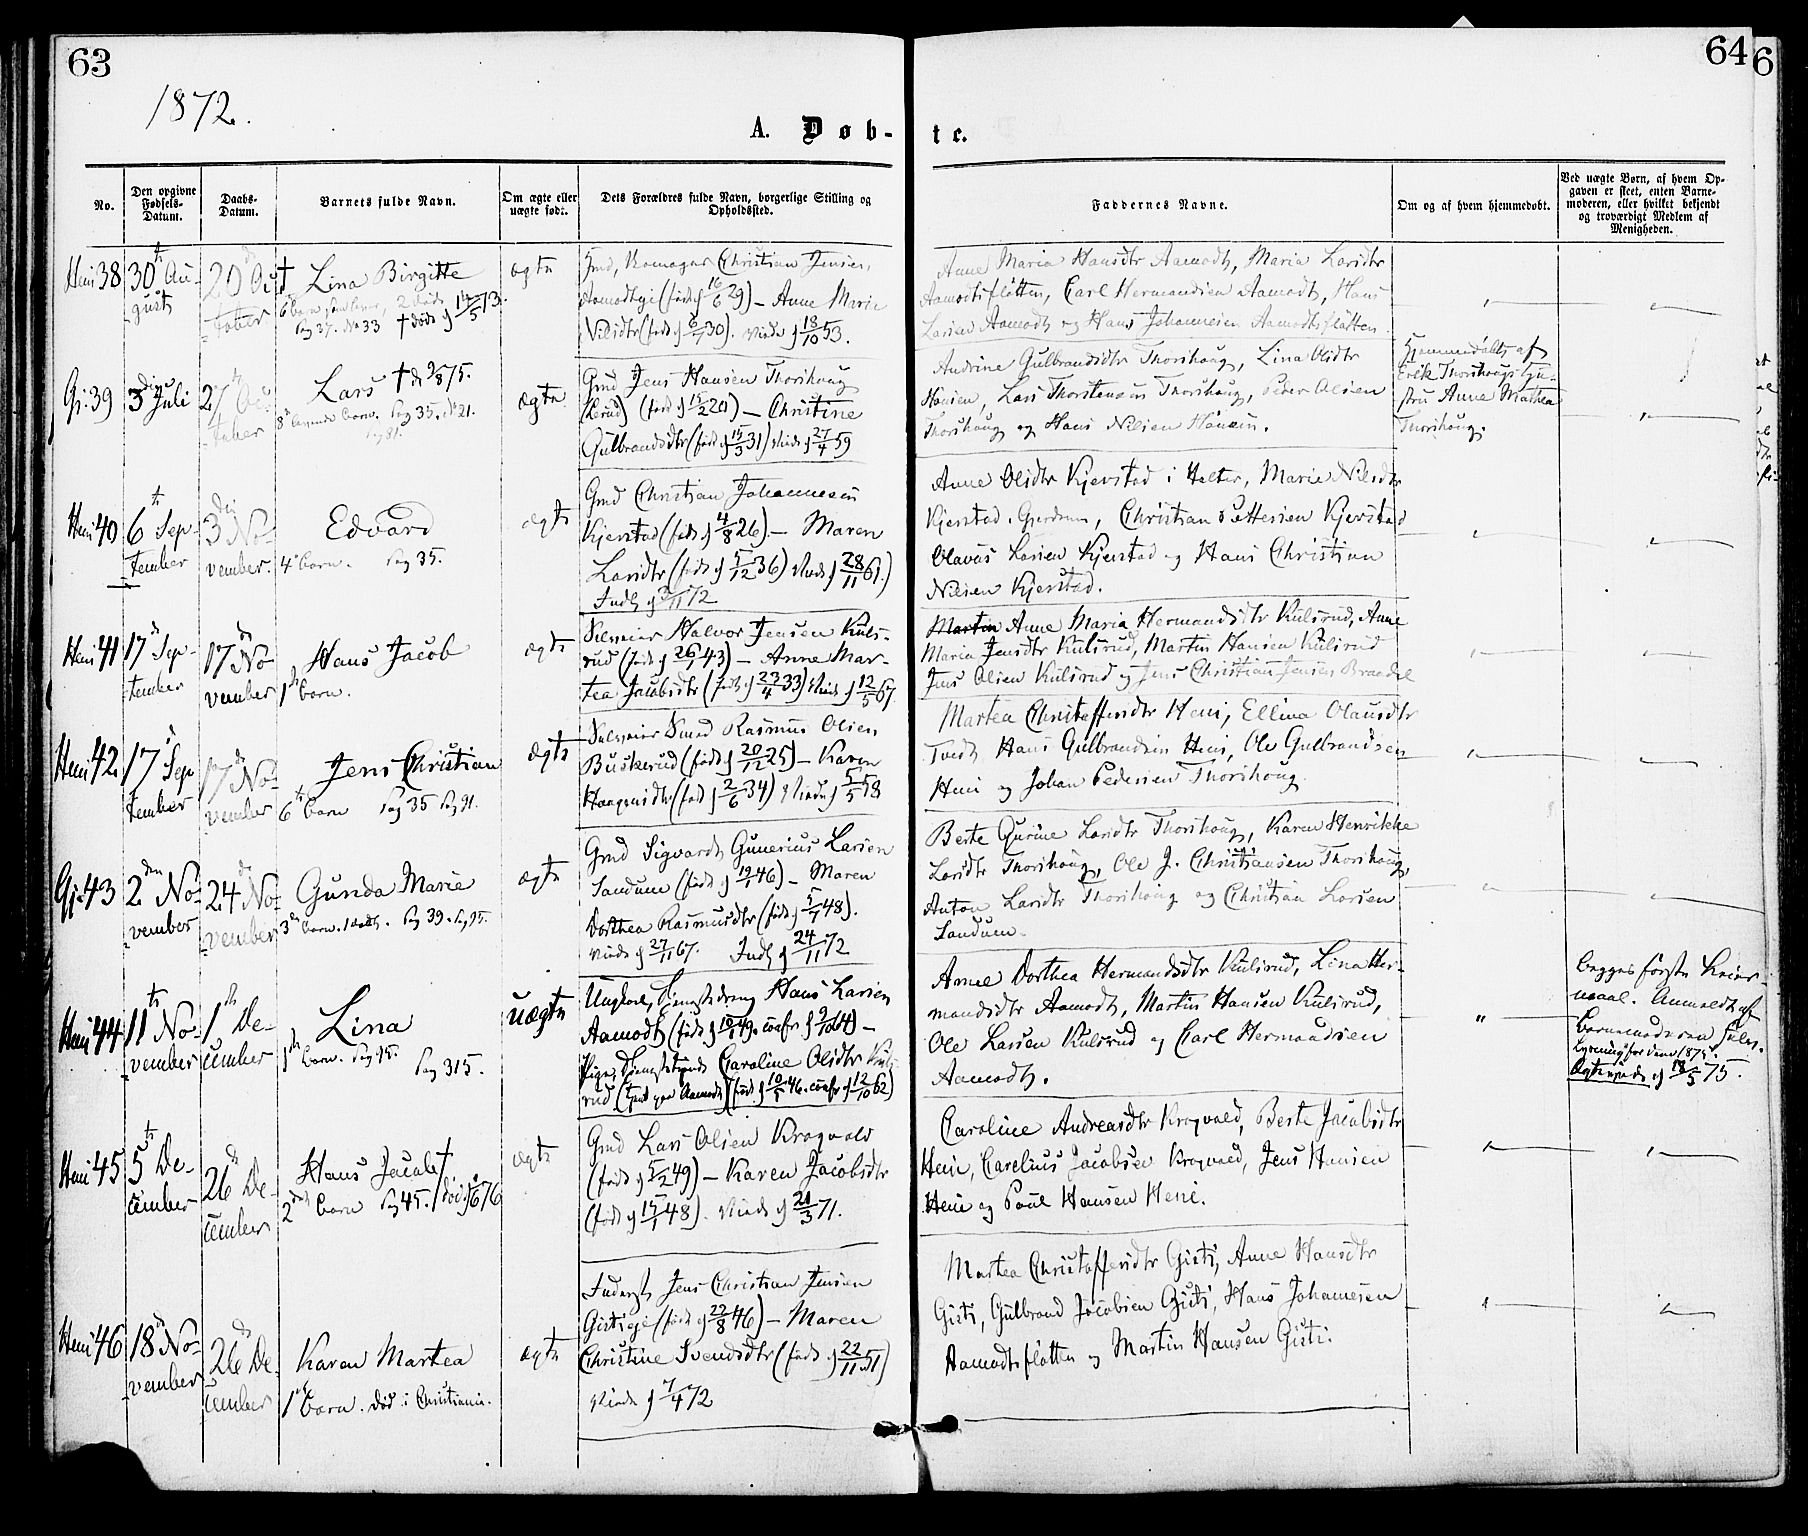 63
64
6
1872.
A. Døb-
te.
No.
Den opgivne
Fødsels-
Datum.
Daabs-
Datum.
Barnets fulde Navn.
Om ægte eller
uægte født.
Dets Forældres fulde Navn, borgerlige Stilling og
Opholdssted.
Faddernes Navne.
Om og af hvem hjemmedøbt.
Ved uægte Børn, af hvem Op-
gaven er skeet, enten Barne-
moderen, eller hvilket bekjendt
og troværdigt Medlem af
Menigheden.
38
30th Au-
gust
20
tober
† Lina Birgitte
6te barn
Pag 37. No 33 † døde
ægte
Christian Jensen,
(født 16/6 29) – Anne Marie
Nilsdtr (født 6/7 30). Viede 18/10 53.
Anne Maria Hansdtr Aamodt, Maria Larsdtr
Aamodtsfløtten, Carl Hermandsen Aamodt, Hans
Larsen Aamodt og Hans Johannesen Aamodtsfløtten.
39
3die Juli
27
tober
Lars
8de barn. Pag 35. No 21.
ægte
Gmd Jens Hansen Thorshoug
(født 15/2 20) – Christine
Gulbrandsdtr (født 15/3 31) Viede 27/4 59
Andrine Gulbrandsdtr Thorshoug, Lina Olsdtr
Lars Thorstensen Thorshoug, Peder Olsen
Thorshoug og Hans Nilsen
Hjemmedøbt af
Erik Thorshougs Hu-
stru Anne Mathea
Thorshoug.
40
6te Sep-
tember
3die No-
vember.
Edvard
4de barn. Pag 35.
ægte
Gmd Christian Johannesen
Kjerstad (født 4/8 26) – Maren
Larsdtr (født 5/12 36) Viede 28/11 61.)
Indl
Anne Olsdtr Kjerstad i Holter, Marie Nilsdtr
Kjerstad i Gjerdrum, Christian Pettersen Kjerstad
Olavus Larsen Kjerstad og Hans Christian
Nilsen Kjerstad.
41
17de Sep-
tember
17de No-
vember
Hans Jacob
1ste barn.
ægte
Selveier Halvor Jensen Kuls-
rud (født 26/1 43) – Anne Mar-
tea Jacobsdtr (født 23/4 33) Viede 12/5 67.
Anne Maria Hermandsdtr Kulsrud, Anne
Maria Jensdtr Kulsrud, Martin Hansen Kulsrud
Jens Olsen Kulsrud og Jens Christian Jensen
42
17de Sep-
tember
17de No-
vember
Jens Christian
6te barn Pag 35 Pag 91.
ægte
Selveier Smed Rasmus Olsen
Buskerud (født 20/12 25) – Karen
Haagensdtr (født 2/6 34) Viede 5/5 58
Martea Christoffersdtr Heni, Ellina Olausdtr
Tveit Hans Gulbrandsen Heni, Ole Gulbrandsen
Heni og Johan Pedersen Thorshoug.
43
2den No-
vember
24de No-
vember
Gunda Marie
3die barn. Pag 39. Pag 95.
ægte
Gmd Sigvardt Gunerius Larsen
Sandum (født 19/1 46) – Maren
Dorthea Rasmusdtr (født 5/7 48).
Viede 27/11 67. Indl 24/11 72
Berte Gurine Larsdtr Thorshoug, Karen Henrikke
Larsdtr Thorshoug, Ole J. Christiansen Thorshoug,
Anton Larsdtr Thorshoug og Christian Larsen
Sandum.
44
11te No-
vember
1ste De-
cember
Lina
1ste barn. Pag 315.
uægte
Ungkarl, Hans Larsen
Aamodt –
Pige, Caroline Olsdtr Kuls-
rud
Anne Dorthea Hermandsdtr Kulsrud, Lina Her-
mandsdtr Aamodt, Martin Hansen Kulsrud,
Ole Larsen Kulsrud og Carl Hermandsen
Aamodt.
Begges første Leier-
maal. Anmeldt af
Barnemoderen
18/5 75.
45
5te De-
cember
26de De-
cember
Hans Jacob †
2det barn Pag 45.
ægte
Gmd Lars Olsen Krogvold
(født 5/2 49) – Karen Jacobsdtr
(født 15/1 48). Viede 21/3 71.
Caroline Andreasdtr Krogvold, Berte Jacobsdtr
Heni, Carelius Jacobsen Krogvold, Jens Hansen
Heni og Paul Hansen Heni.
46
18de No-
vember
26de De-
cember
Karen Martea
1ste barn. død i Christiania.
ægte
Inderst Jens Christian Jensen
(født 22/8 46) – Maren
Christine Svendsdtr (født 22/11 51)
Viede 7/4 72
Martea Christoffersdtr Gisti, Anne Hansdtr
Gisti, Gulbrand Jacobsen Gisti, Hans Johannesen
Aamodtsfløtten og Martin Hansen Gisti.